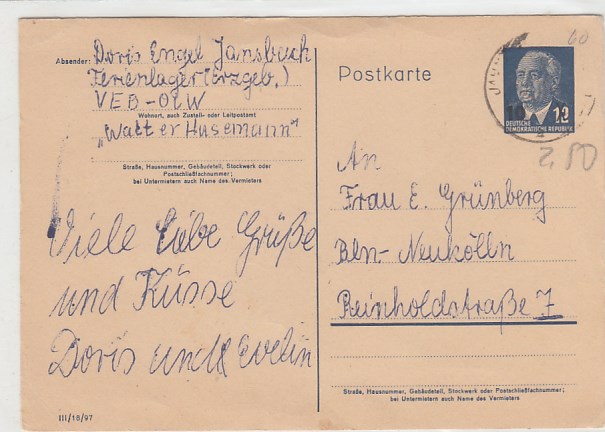 Absender: Doris Engel Jansbach
Ferienlager (Erzgeb.)
VEB-OLW
Wohnort, auch Zustell- oder Leitpostamt
"Walter Husemann"
Straße, Hausnummer, Gebäudeteil, Stockwerk oder
Postschließfachnummer;
bei Untermietern auch Name des Vermieters
Viele liebe Grüße
und Küsse
Doris und Evelin
III/18/97
Postkarte
60
12
DEUTSCHE
DEMOKRATISCHE REPUBLIK
2,80
An
Frau E. Grünberg
Bln-Neukölln
Reinholdstraße 7
Straße, Hausnummer, Gebäudeteil, Stockwerk oder Postschließfachnummer;
bei Untermietern auch Name des Vermieters